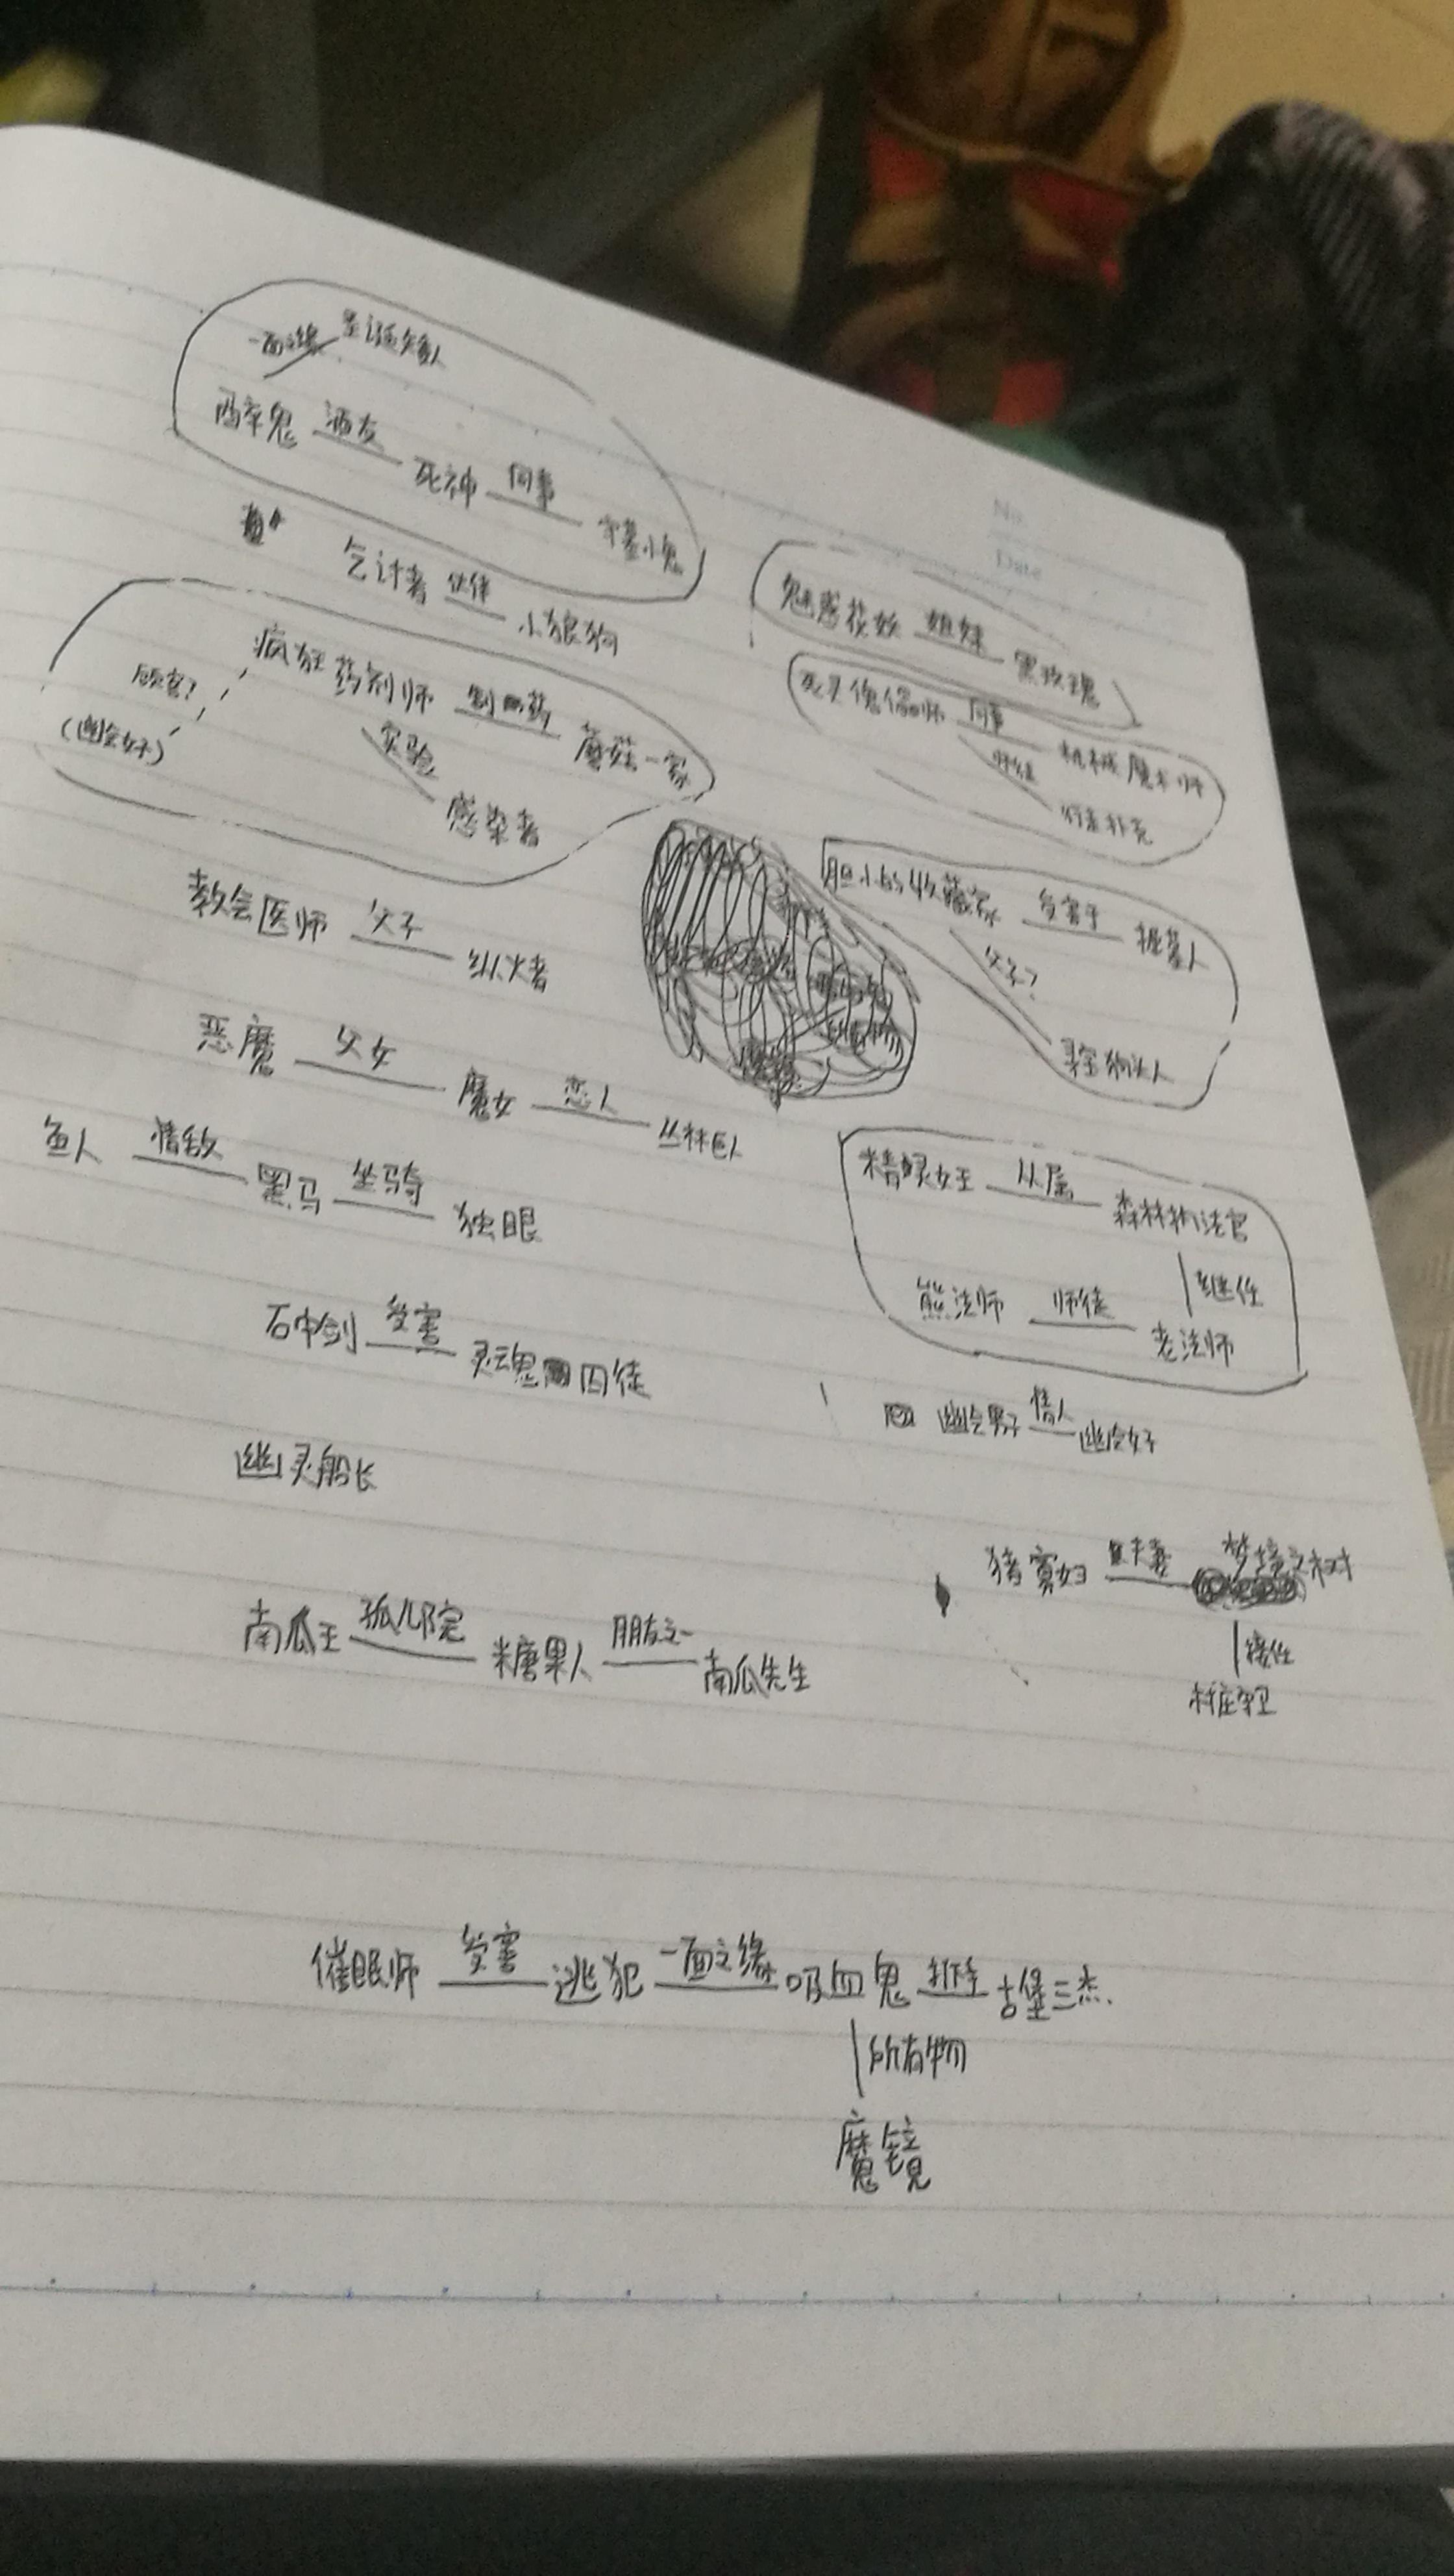 一面之缘 圣诞老人
酒鬼 酒友 死神 同事 守墓小鬼
乞讨者 伙伴 小狼狗
疯狂药剂师 制药 蘑菇一家
顾客?
(幽会女子)
实验
感染者
教会医师 父子 纵火者
恶魔 父女 魔女 恋人 丛林巨人
鱼人 情敌 黑马 坐骑 独眼
石中剑 受害 灵魂囚徒
幽灵船长
南瓜王 孤儿院 糖果人 朋友之一 南瓜先生
No.
Date
魅惑花妖 姐妹 黑玫瑰
傀儡师 同事 机械魔术师
师徒
扑克
胆小的收藏家 受害于 掘墓人
父子?
寻宝狗头人
精灵女王 从属 森林执法官
继任
熊法师 师徒 老法师
幽会男子 情人 幽会女子
猪寡妇 夫妻 梦境之树
接任
村庄守卫
催眠师 受害 逃犯 一面之缘 吸血鬼 古堡三杰
所有物
魔镜